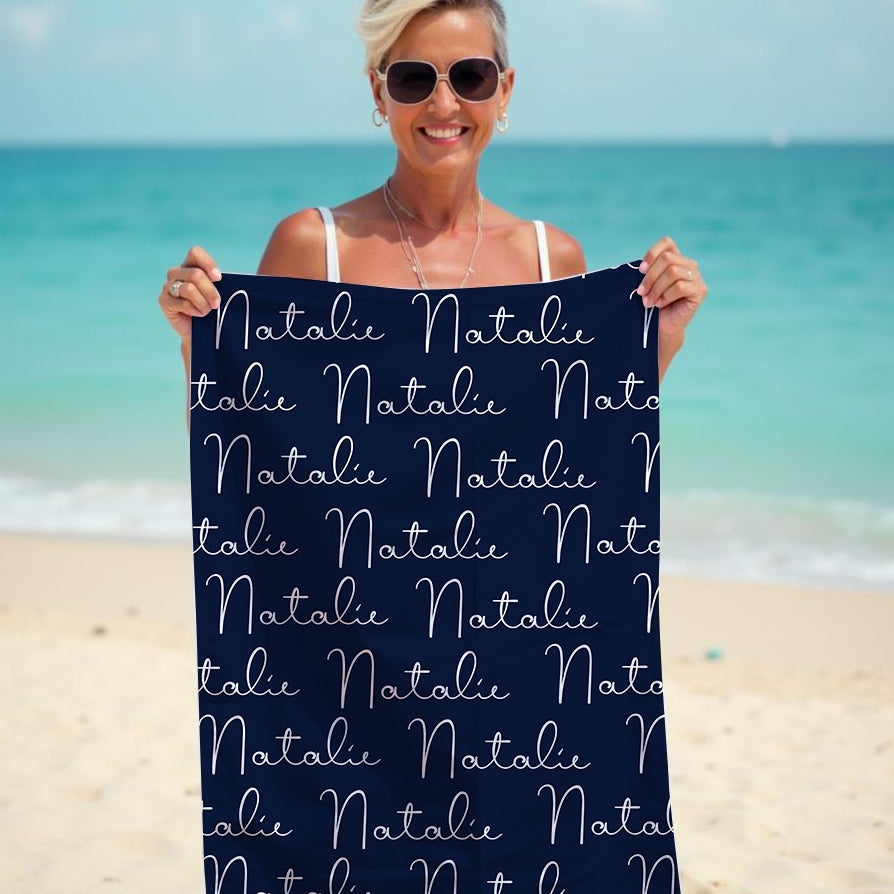 Natalie Natalie N
talie Natalie Nata
Natalie Natalie N
talie Natalie Nata
Natalie Natalie N
talie Natalie Nata
Natalie Natalie N
talie Natalie Natal
Natalie Natalie N